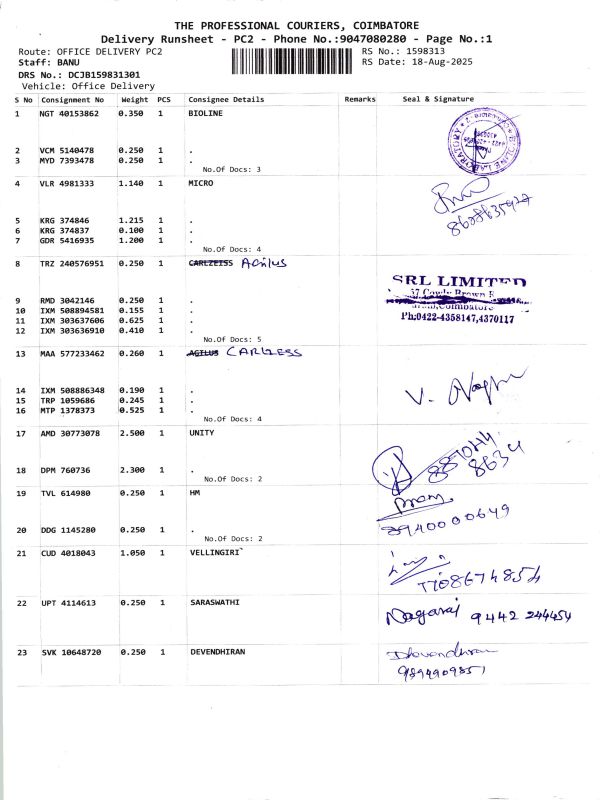 THE PROFESSIONAL COURIERS, COIMBATORE
Delivery Runsheet - PC2 - Phone No.:9047080280 - Page No.:1
Route: OFFICE DELIVERY PC2 RS No.: 1598313
Staff: BANU RS Date: 18-Aug-2025
DRS No.: DCJB159831301
Vehicle: Office Delivery
S No Consignment No Weight PCS Consignee Details Remarks Seal & Signature
1 NGT 40153862 0.350 1 BIOLINE
2 VCM 5140478 0.250 1 .
3 MYD 7393478 0.250 1 .
No.Of Docs: 3
4 VLR 4981333 1.140 1 MICRO
5 KRG 374846 1.215 1 .
6 KRG 374837 0.100 1 .
7 GDR 5416935 1.200 1 .
No.Of Docs: 4
8 TRZ 240576951 0.250 1 CARLZEISS Agilus
SRL LIMITED
9 RMD 3042146 0.250 1 .
10 IXM 508894581 0.155 1 .
11 IXM 303637606 0.625 1 .
Ph:0422-4358147,4370117
12 IXM 303636910 0.410 1 .
No.Of Docs: 5
13 MAA 577233462 0.260 1 AGILUS CARLZESS
14 IXM 508886348 0.190 1 .
15 TRP 1059686 0.245 1 .
16 MTP 1378373 0.525 1 .
No.Of Docs: 4
17 AMD 30773078 2.500 1 UNITY
18 DPM 760736 2.300 1 .
No.Of Docs: 2
19 TVL 614980 0.250 1 HM
20 DDG 1145280 0.250 1 .
No.Of Docs: 2
21 CUD 4018043 1.050 1 VELLINGIRI`
22 UPT 4114613 0.250 1 SARASWATHI
Nagaraj 9442 244454
23 SVK 10648720 0.250 1 DEVENDHIRAN